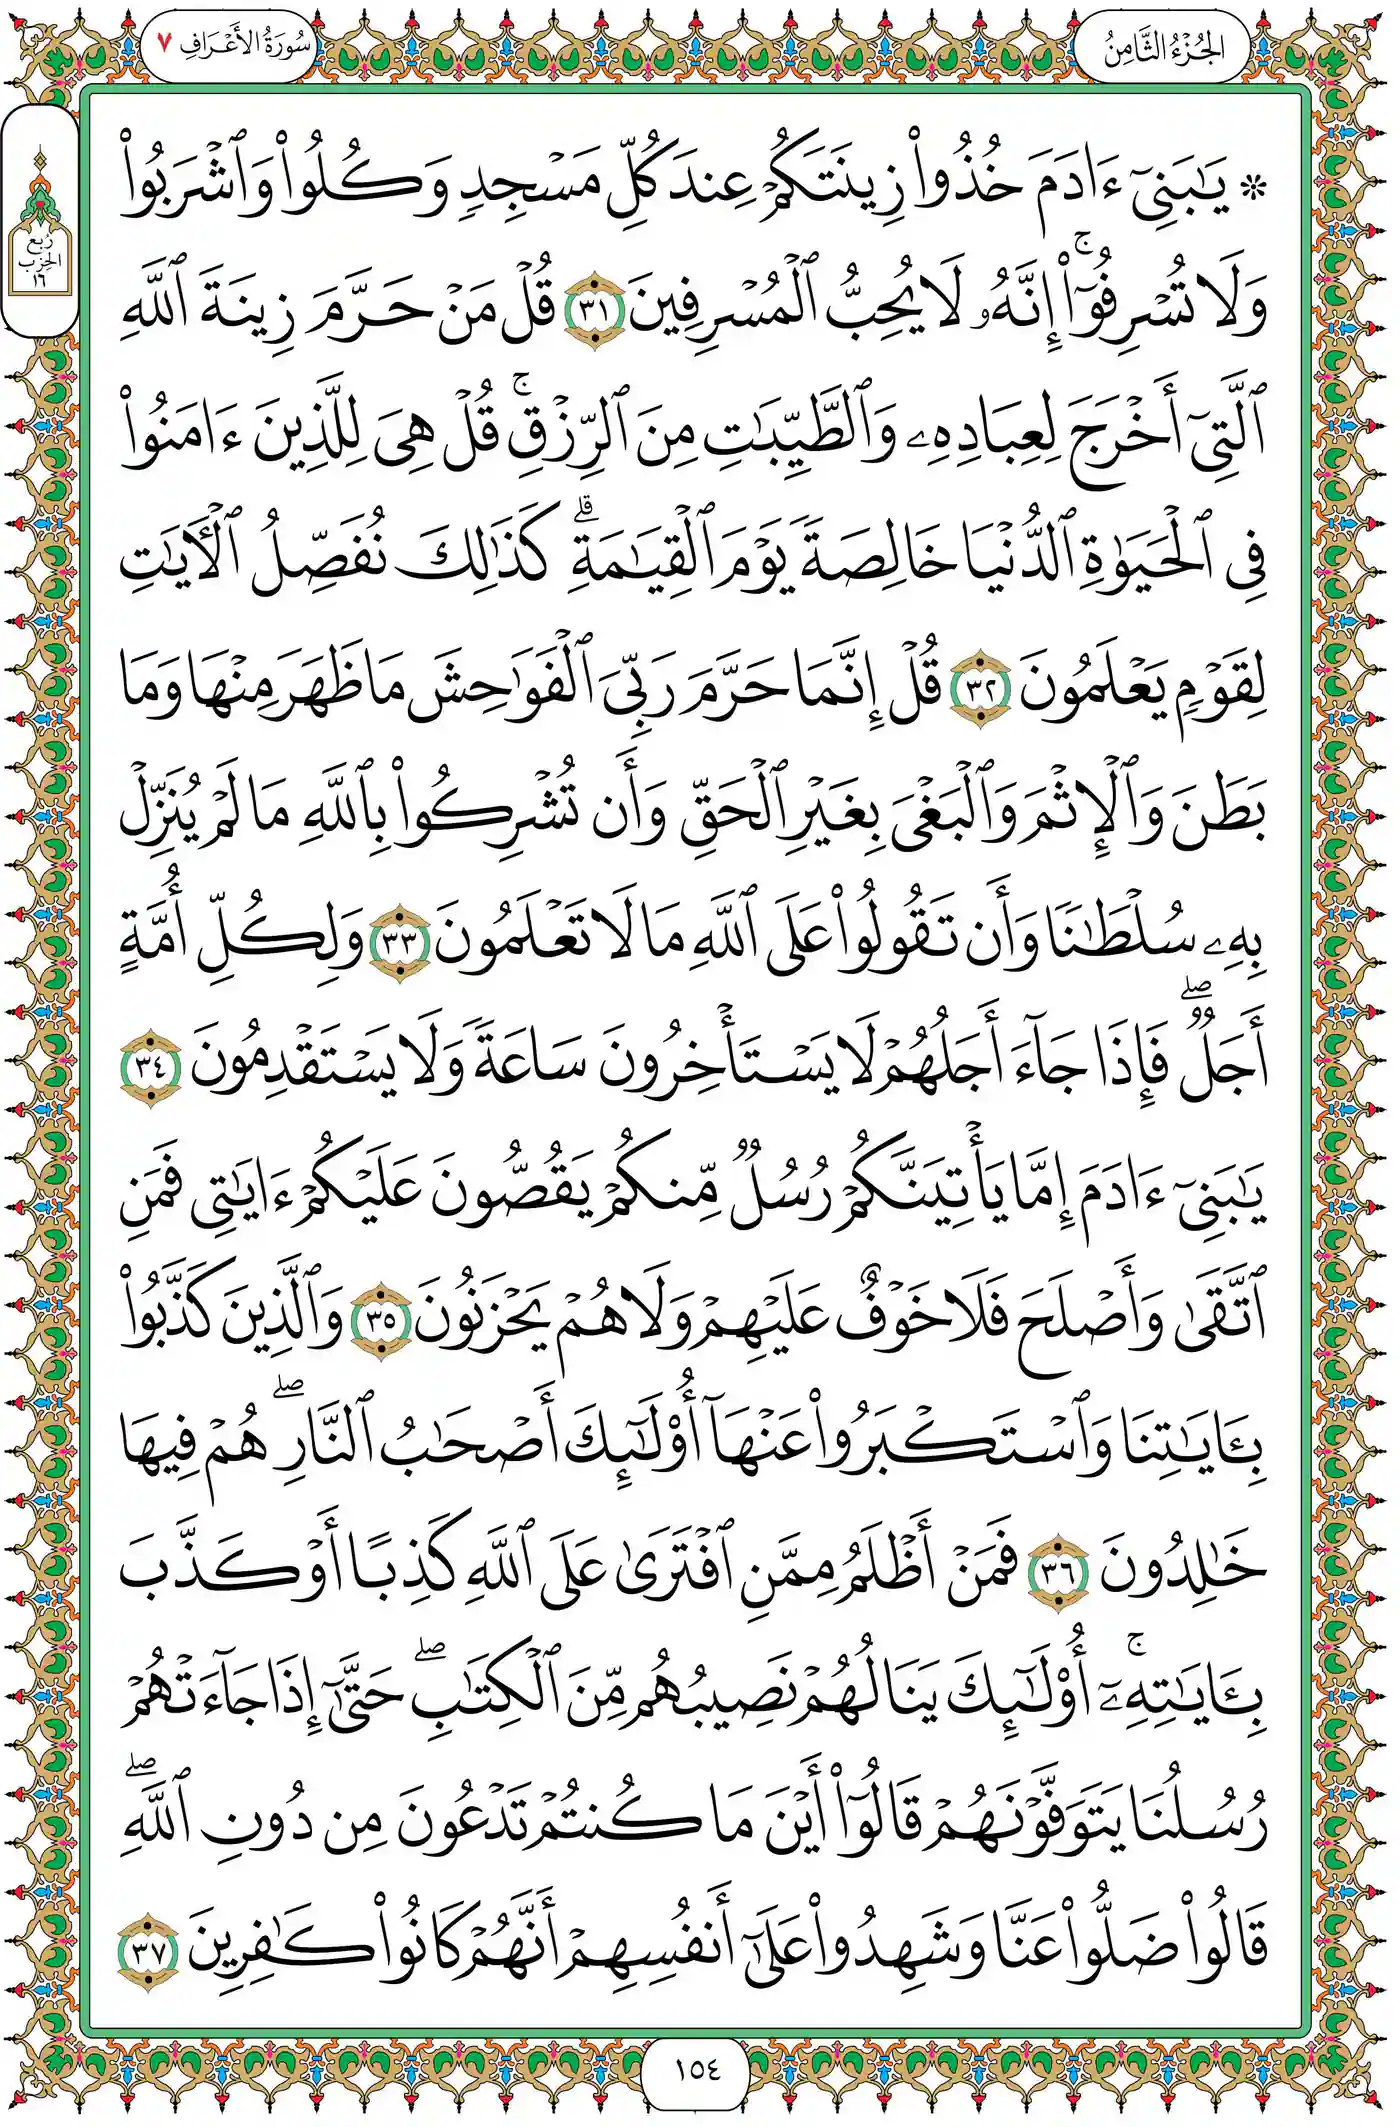 الجُزْءُ الثَّامِنُ
سُورَةُ الأَعْرَافِ ٧
رُبع
الحِزْب
١٦
۞ يَٰبَنِيٓ ءَادَمَ خُذُواْ زِينَتَكُمۡ عِندَ كُلِّ مَسۡجِدٖ وَكُلُواْ وَٱشۡرَبُواْ
وَلَا تُسۡرِفُوٓاْۚ إِنَّهُۥ لَا يُحِبُّ ٱلۡمُسۡرِفِينَ ٣١ قُلۡ مَنۡ حَرَّمَ زِينَةَ ٱللَّهِ
ٱلَّتِيٓ أَخۡرَجَ لِعِبَادِهِۦ وَٱلطَّيِّبَٰتِ مِنَ ٱلرِّزۡقِۚ قُلۡ هِيَ لِلَّذِينَ ءَامَنُواْ
فِي ٱلۡحَيَوٰةِ ٱلدُّنۡيَا خَالِصَةٗ يَوۡمَ ٱلۡقِيَٰمَةِۗ كَذَٰلِكَ نُفَصِّلُ ٱلۡأٓيَٰتِ
لِقَوۡمٖ يَعۡلَمُونَ ٣٢ قُلۡ إِنَّمَا حَرَّمَ رَبِّيَ ٱلۡفَوَٰحِشَ مَا ظَهَرَ مِنۡهَا وَمَا
بَطَنَ وَٱلۡإِثۡمَ وَٱلۡبَغۡيَ بِغَيۡرِ ٱلۡحَقِّ وَأَن تُشۡرِكُواْ بِٱللَّهِ مَا لَمۡ يُنَزِّلۡ
بِهِۦ سُلۡطَٰنٗا وَأَن تَقُولُواْ عَلَى ٱللَّهِ مَا لَا تَعۡلَمُونَ ٣٣ وَلِكُلِّ أُمَّةٍ
أَجَلٞۖ فَإِذَا جَآءَ أَجَلُهُمۡ لَا يَسۡتَأۡخِرُونَ سَاعَةٗ وَلَا يَسۡتَقۡدِمُونَ ٣٤
يَٰبَنِيٓ ءَادَمَ إِمَّا يَأۡتِيَنَّكُمۡ رُسُلٞ مِّنكُمۡ يَقُصُّونَ عَلَيۡكُمۡ ءَايَٰتِي فَمَنِ
ٱتَّقَىٰ وَأَصۡلَحَ فَلَا خَوۡفٌ عَلَيۡهِمۡ وَلَا هُمۡ يَحۡزَنُونَ ٣٥ وَٱلَّذِينَ كَذَّبُواْ
بِـَٔايَٰتِنَا وَٱسۡتَكۡبَرُواْ عَنۡهَآ أُوْلَٰٓئِكَ أَصۡحَٰبُ ٱلنَّارِۖ هُمۡ فِيهَا
خَٰلِدُونَ ٣٦ فَمَنۡ أَظۡلَمُ مِمَّنِ ٱفۡتَرَىٰ عَلَى ٱللَّهِ كَذِبًا أَوۡ كَذَّبَ
بِـَٔايَٰتِهِۦٓۚ أُوْلَٰٓئِكَ يَنَالُهُمۡ نَصِيبُهُم مِّنَ ٱلۡكِتَٰبِۖ حَتَّىٰٓ إِذَا جَآءَتۡهُمۡ
رُسُلُنَا يَتَوَفَّوۡنَهُمۡ قَالُوٓاْ أَيۡنَ مَا كُنتُمۡ تَدۡعُونَ مِن دُونِ ٱللَّهِۖ
قَالُواْ ضَلُّواْ عَنَّا وَشَهِدُواْ عَلَىٰٓ أَنفُسِهِمۡ أَنَّهُمۡ كَانُواْ كَٰفِرِينَ ٣٧
١٥٤